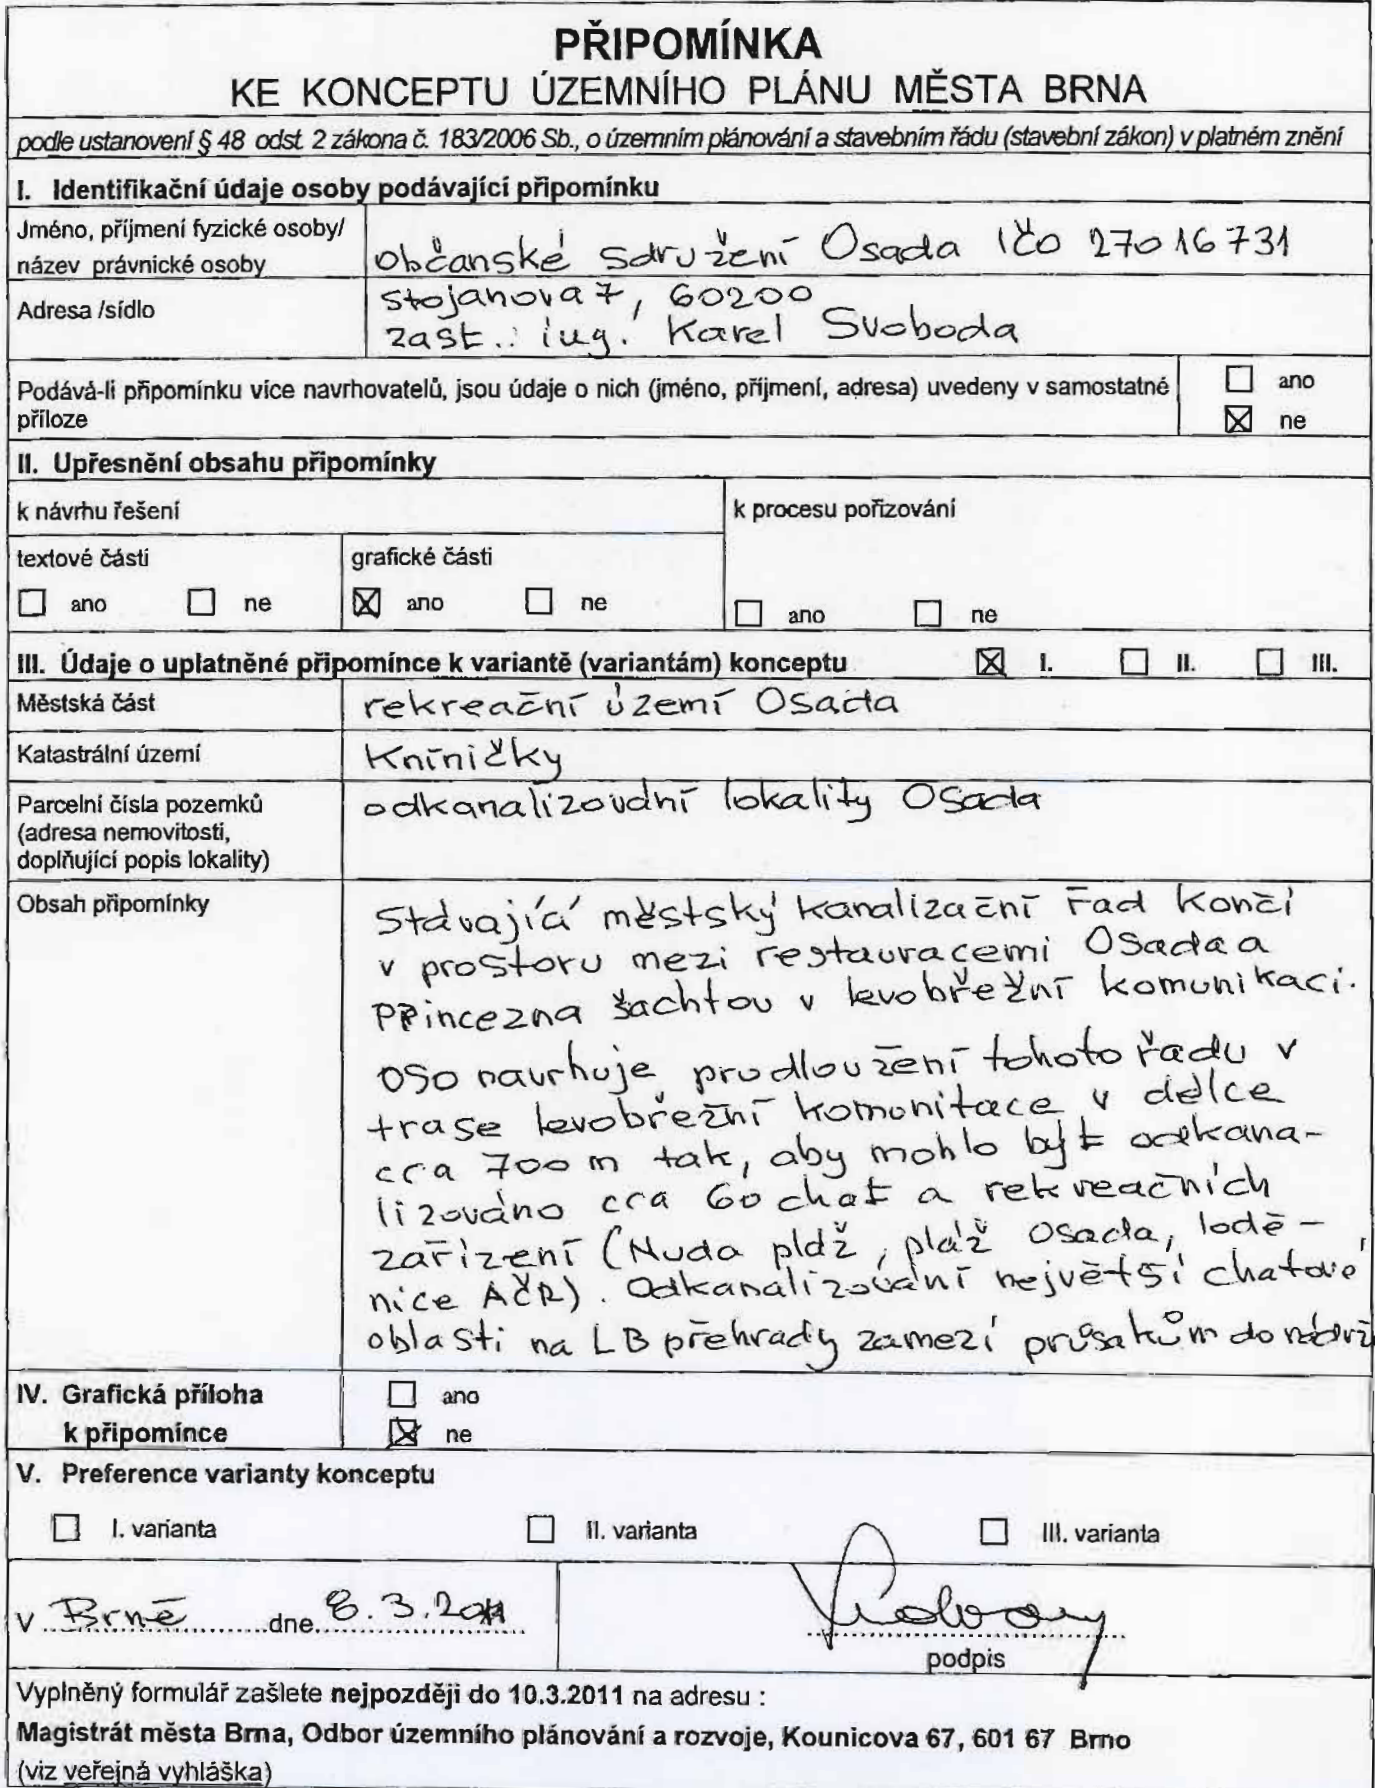 PŘIPOMÍNKA
KE KONCEPTU ÚZEMNÍHO PLÁNU MĚSTA BRNA
podle ustanovení § 48 odst. 2 zákona č. 183/2006 Sb., o územním plánování a stavebním řádu (stavební zákon) v platném znění
I. Identifikační údaje osoby podávající připomínku
Jméno, příjmení fyzické osoby/
název právnické osoby
občanské sdružení Osada IČO 27016731
Adresa /sídlo
Stojanova 7, 60200
zast.: ing. Karel Svoboda
Podává-li připomínku více navrhovatelů, jsou údaje o nich (jméno, příjmení, adresa) uvedeny v samostatné
příloze
☐ ano
☒ ne
II. Upřesnění obsahu připomínky
k návrhu řešení
k procesu pořizování
textové části
grafické části
☐ ano ☐ ne ☒ ano ☐ ne
☐ ano ☐ ne
III. Údaje o uplatněné připomínce k variantě (variantám) konceptu ☒ I. ☐ II. ☐ III.
Městská část
rekreační území Osada
Katastrální území
Kníničky
Parcelní čísla pozemků
(adresa nemovitosti,
doplňující popis lokality)
odkanalizování lokality Osada
Obsah připomínky
Stávající městský kanalizační řad končí
v prostoru mezi restauracemi Osada a
Princezna šachtou v levobřežní komunikaci.
OSO navrhuje prodloužení tohoto řadu v
trase levobřežní komunitace v délce
cca 700 m tak, aby mohlo být odkana-
lizováno cca 60 chat a rekreačních
zařízení (Nuda pláž, pláž Osada, lodě-
nice AČR). Odkanalizování největší chatové
oblasti na LB přehrady zamezí průsakům do nádrž
IV. Grafická příloha
k připomínce
☐ ano
☒ ne
V. Preference varianty konceptu
☐ I. varianta ☐ II. varianta ☐ III. varianta
V Brně dne 8.3.2011
Svoboda
podpis
Vyplněný formulář zašlete nejpozději do 10.3.2011 na adresu :
Magistrát města Brna, Odbor územního plánování a rozvoje, Kounicova 67, 601 67 Brno
(viz veřejná vyhláška)